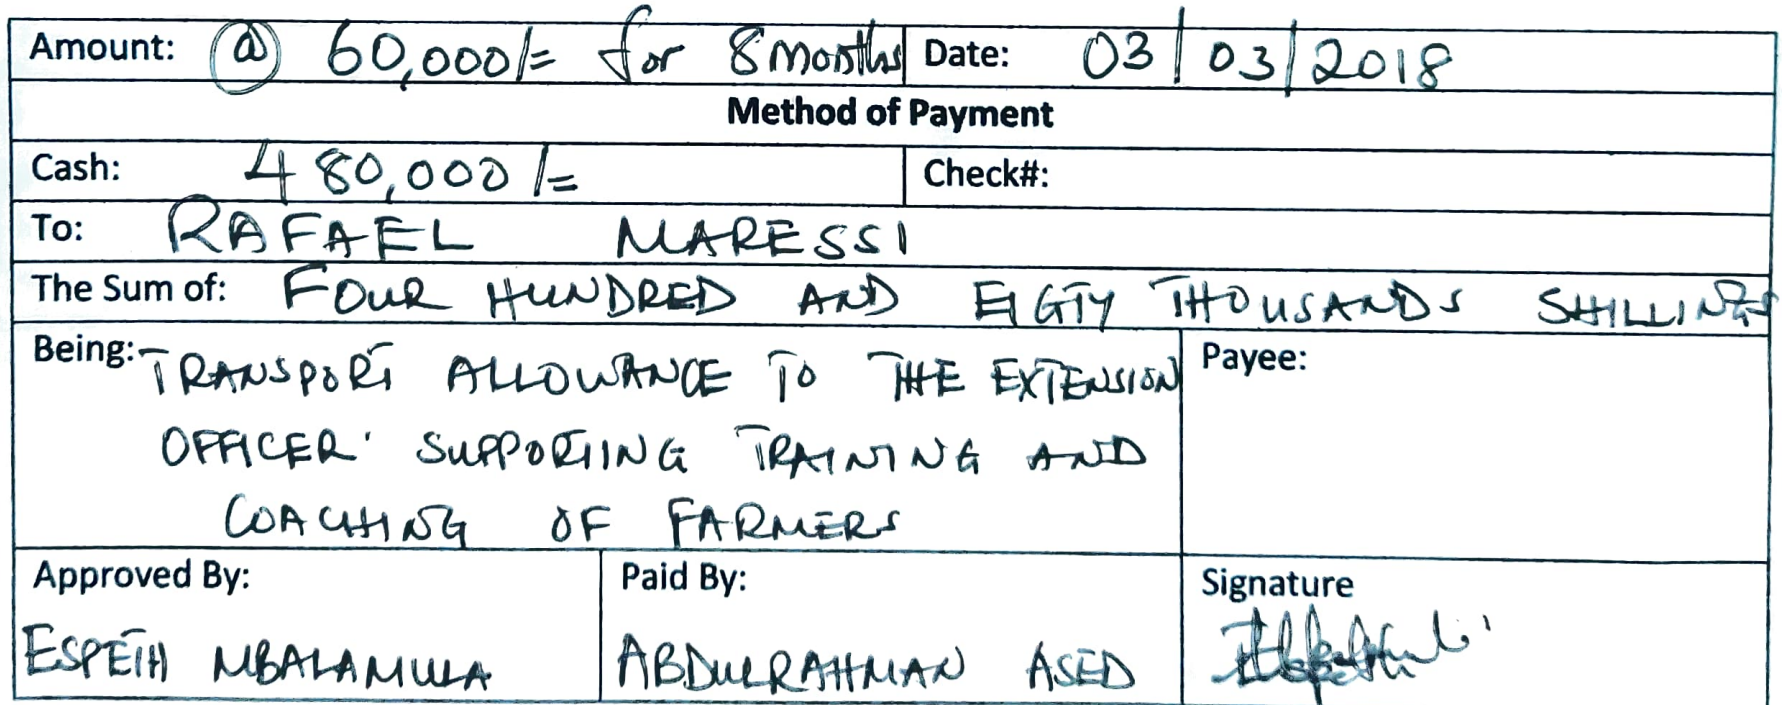 Amount: @ 60,000/= for 8 months Date: 03/03/2018
Method of Payment
Cash: 480,000/= Check#:
To: RAFAEL MARESSI
The Sum of: FOUR HUNDRED AND EIGTY THOUSANDS SHILLINGS
Being: TRANSPORT ALLOWANCE TO THE EXTENSION Payee:
OFFICER' SUPPORTING TRAINING AND
COACHING OF FARMERS
Approved By: Paid By: Signature
ESPETH MBALAMULA ABDULRAHMAN ASED